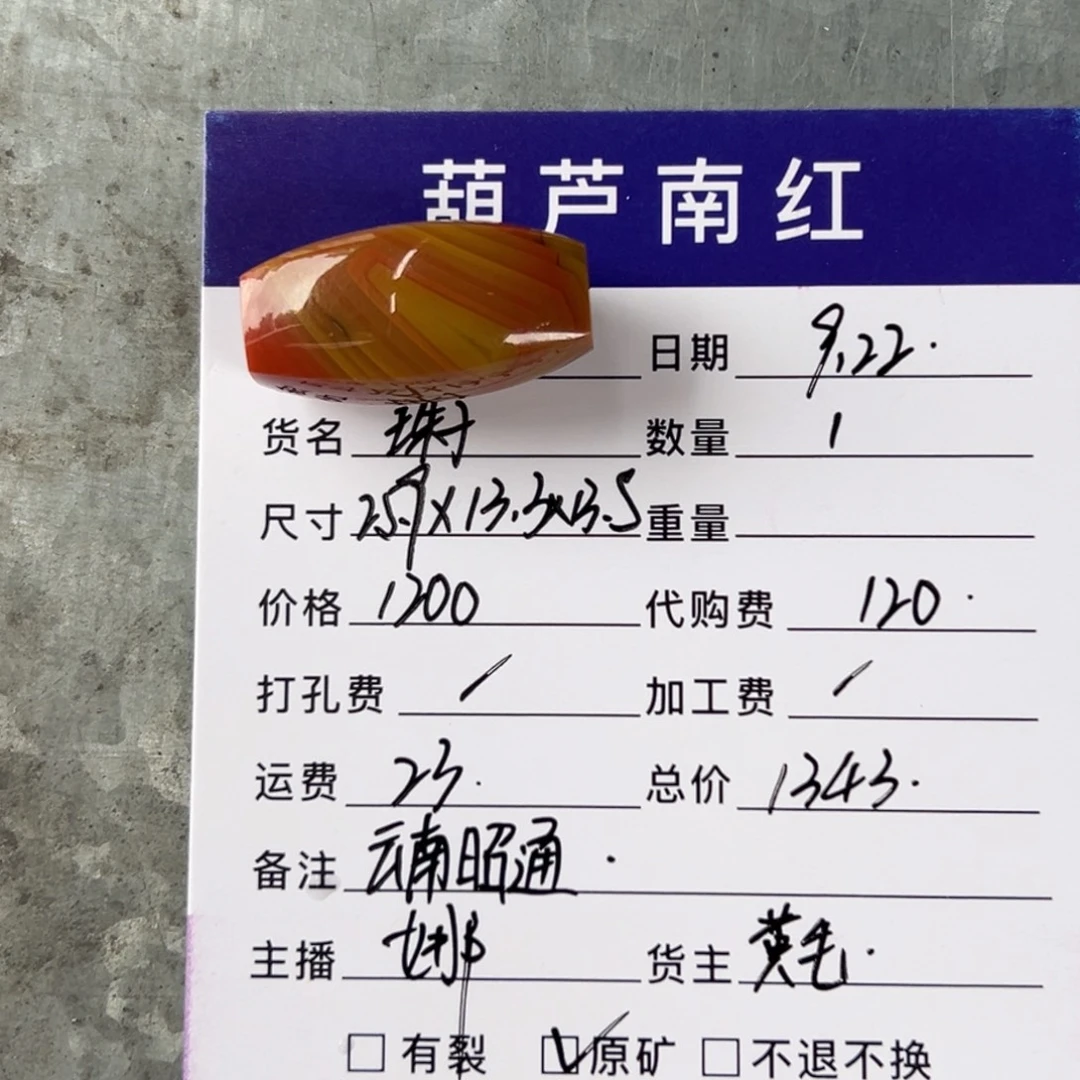 葫芦南红
日期 9.22.
货名 珠子 数量 1
尺寸 25.9X13.3x13.5 重量
价格 1200 代购费 120.
打孔费 / 加工费 /
运费 23. 总价 1343.
备注 云南昭通.
主播 七娜 货主 黄毛.
□ 有裂 ☑ 原矿 □ 不退不换